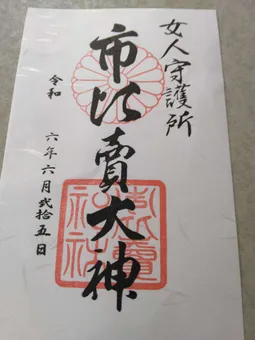 女人守護所
市比賣大神
令和 六年六月弐拾五日
市比賣神社